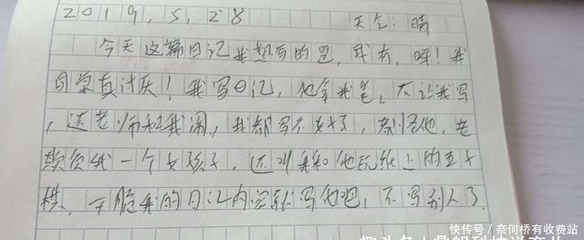 2019,5,28 天气:晴
今天这篇日记我想写的是,我有,呀!我
同桌真讨厌!我写日记,他拿我笔,不让我写
,还老师和我闹,我都写不好了,都怪他,老
欺负我一个女孩子,还叫我和他玩纸上的五子
棋,干脆我的日记内容就写他吧,不写别人了.
快传号/奈何桥有收费站